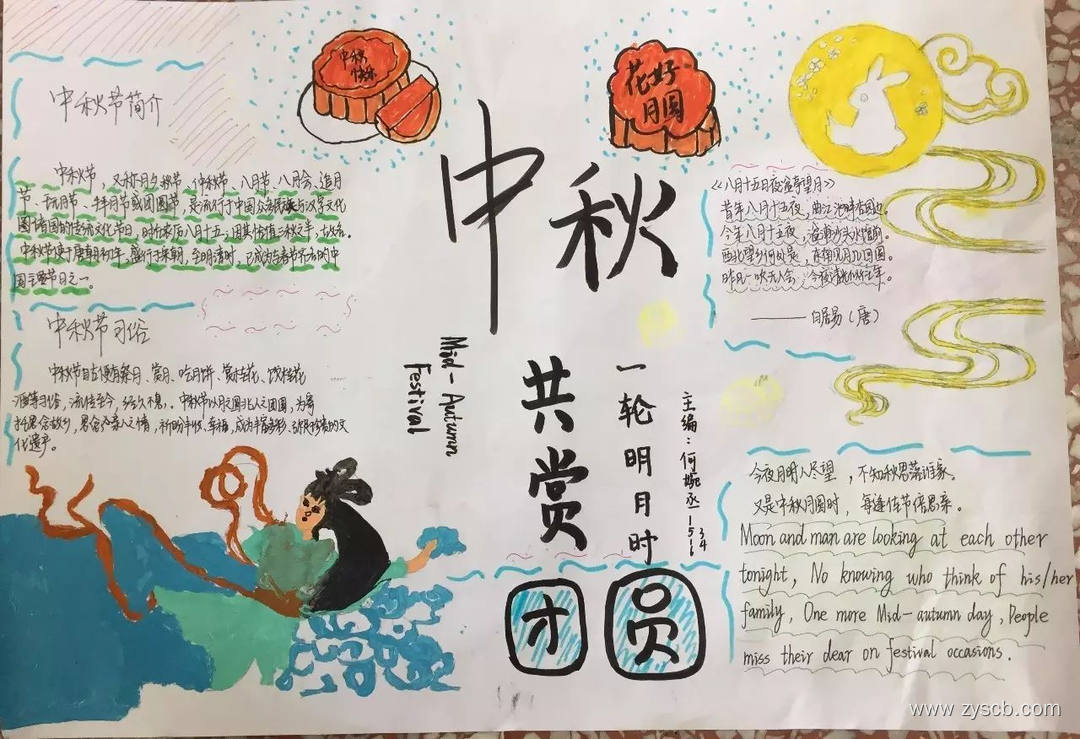 中秋节简介
中秋节，又称月夕、秋节、仲秋节、八月节、八月会、追月
节、玩月节、拜月节或团圆节，是流行于中国众多民族与汉字文化
圈诸国的传统文化节日，时在农历八月十五；因其恰值三秋之半，故名。
中秋节始于唐朝初年，盛行于宋朝，至明清时，已成为与春节齐名的中
国主要节日之一。
中秋节习俗
中秋节自古便有祭月、赏月、吃月饼、赏桂花、饮桂花
酒等习俗，流传至今，经久不息。中秋节以月之圆兆人之团圆，为寄
托思念故乡，思念亲人之情，祈盼丰收、幸福，成为丰富多彩、弥足珍贵的文
化遗产。
中秋
快乐
花好
月圆
中秋
Mid-Autumn
Festival
共赏
一轮明月时
主编：何婉丞
才
员
《八月十五日夜湓亭望月》
昔年八月十五夜，曲江池畔杏园边。
今年八月十五夜，湓浦沙头水馆前。
西北望乡何处是，东南见月几回圆。
昨风一吹无人会，今夜清光似往年。
——白居易（唐）
今夜月明人尽望，不知秋思落谁家。
又是中秋月圆时，每逢佳节倍思亲。
Moon and man are looking at each other
tonight, No knowing who think of his/her
family, One more Mid-autumn day, People
miss their dear on festival occasions.
www.zyscb.com